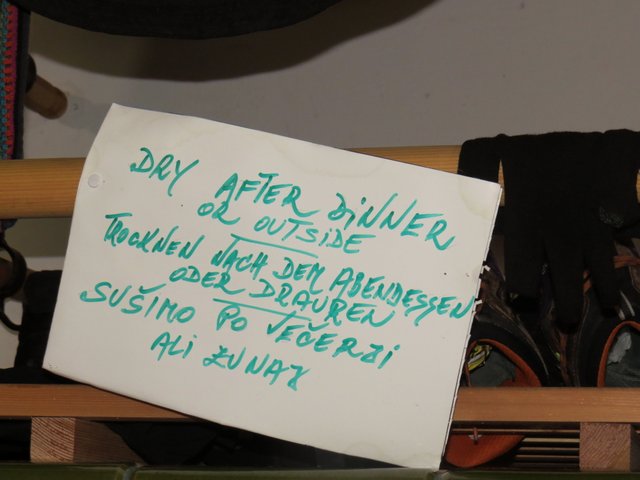 DRY AFTER DINNER
OR OUTSIDE
TROCKNEN NACH DEM ABENDESSEN
ODER DRAUßEN
SUŠIMO PO VEČERJI
ALI ZUNAJ